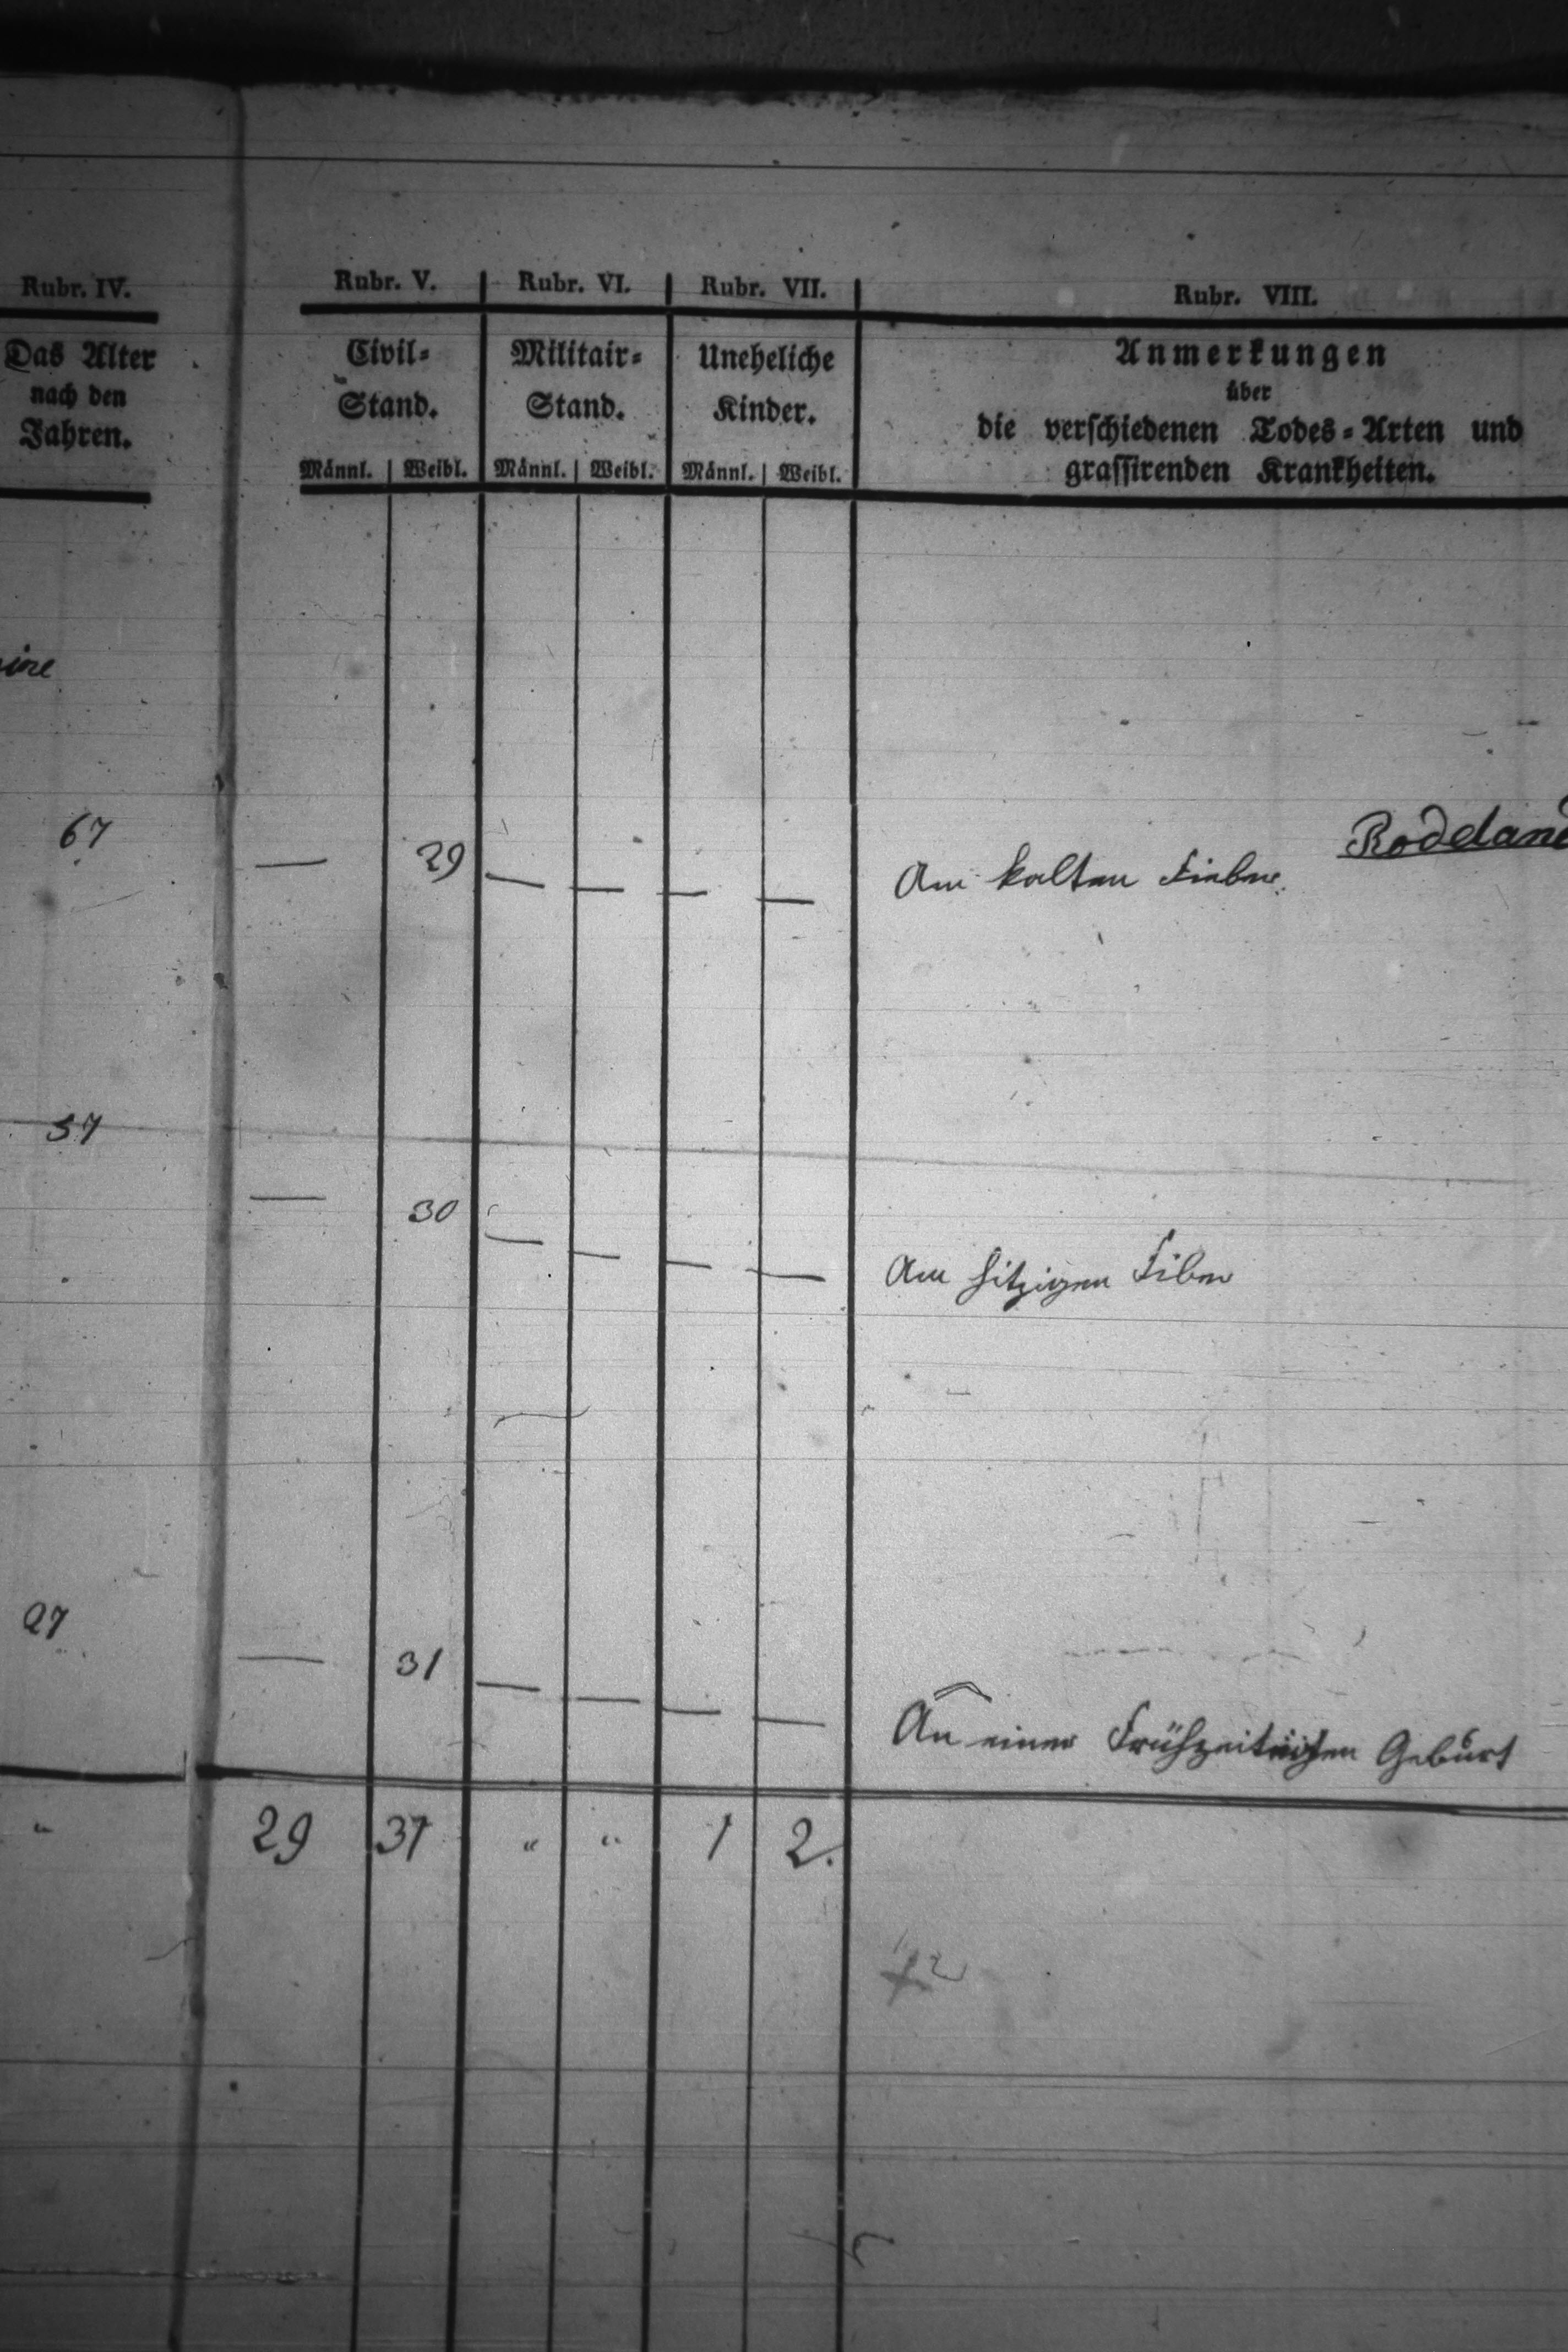 Rubr. IV. Rubr. V. Rubr. VI. Rubr. VII. Rubr. VIII.
Das Alter Civil= Militair= Uneheliche Anmerkungen
nach den über
Jahren. Stand. Stand. Kinder. die verschiedenen Todes=Arten und
Männl. Weibl. Männl. Weibl. Männl. Weibl. grassirenden Krankheiten.
Rodeland
67 — 29 — — — — Am kalten Fieber.
37
— 30 — — — — Am hitzigen Fiber
27
— 31 — — — — An einer Frühzeitigen Geburt
" 29 31 " " 1 2.